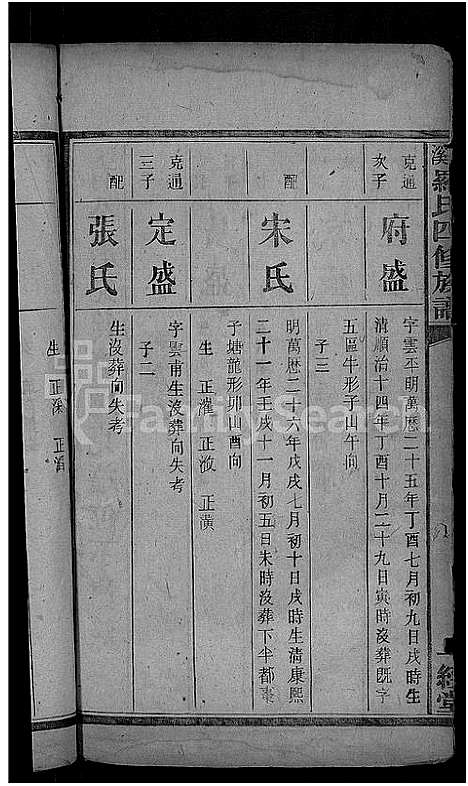 溪羅氏四修族譜
一經堂
克通
次子
府盛
字雲丕明萬歷二十五年丁酉七月初九日戌時生
清順治十四年丁酉十月二十九日寅時沒葬既字
五區牛形子山午向
子三
配
宋氏
明萬歷二十六年戊戌七月初十日戌時生清康熙
二十一年壬戌十一月初五日未時沒葬下半都棗
子塘龍形卯山酉向
生 正漼 正溆 正潢
克通
三子
定盛
字雲甫生沒葬向失考
子二
配
張氏
生沒葬向失考
生 正深 正淯
FamilySearch